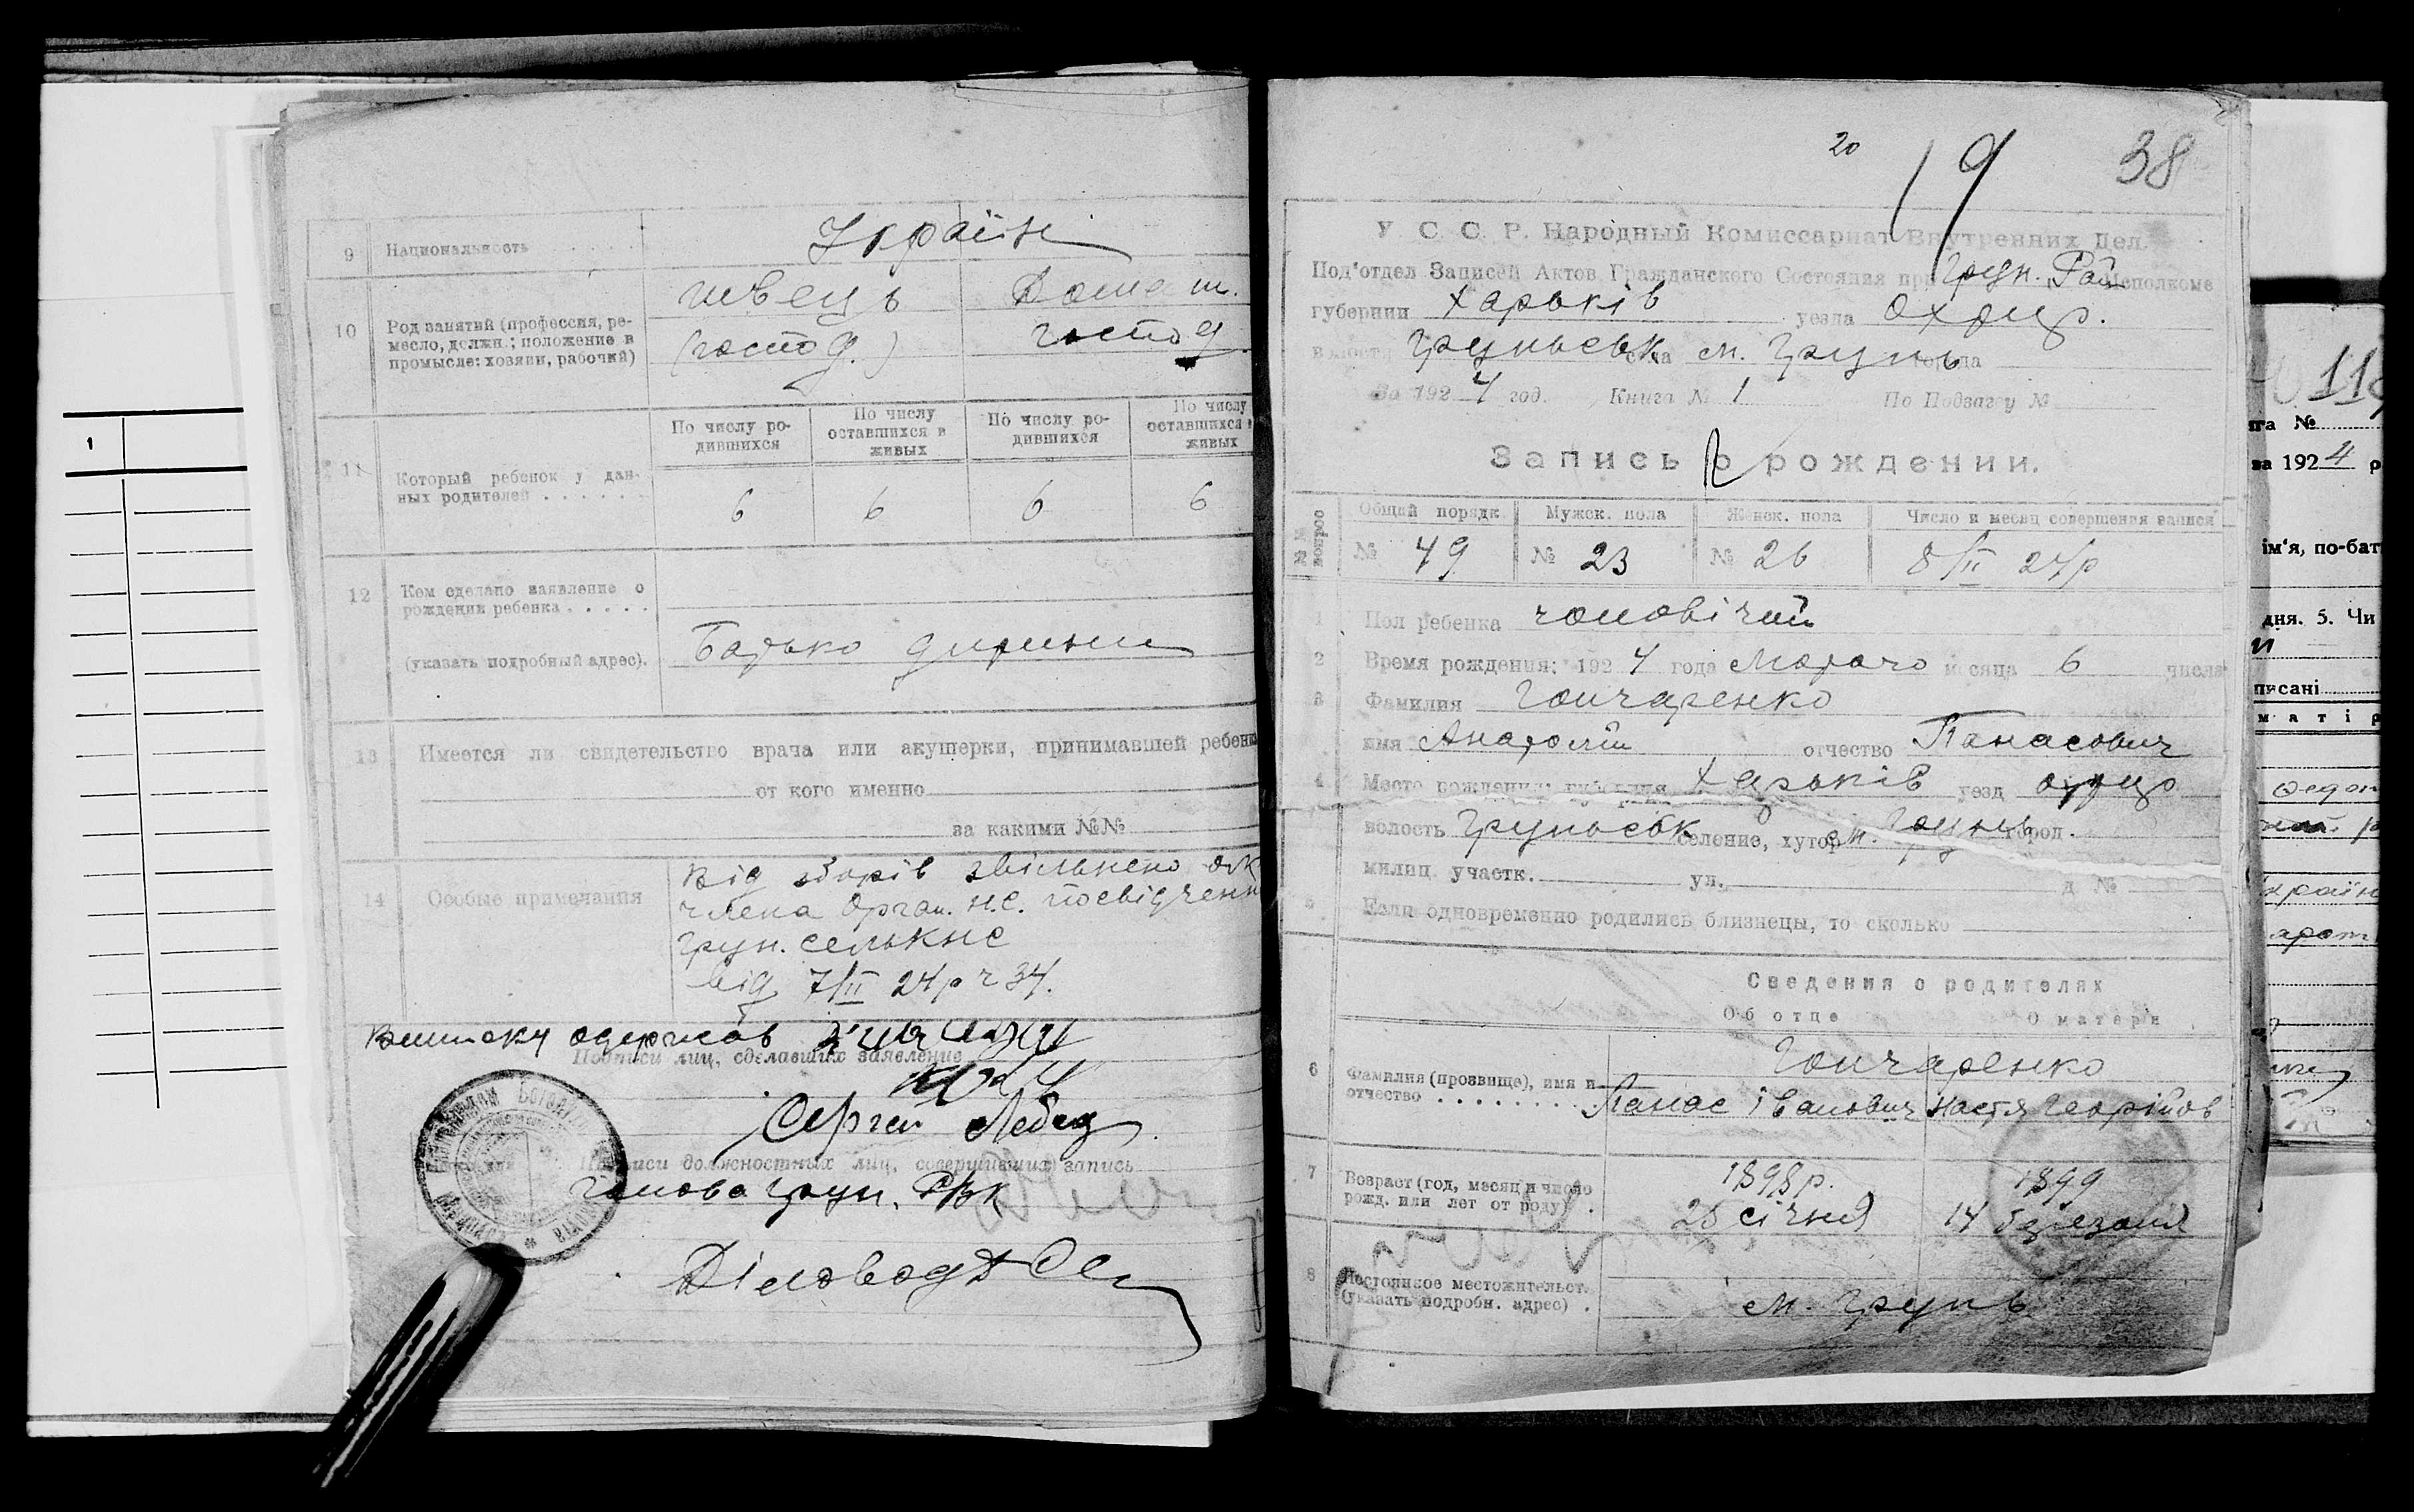 9 Национальность Україні
10 Род занятий (профессия, ре-
месло, должн.; положение в
промысле: хозяин, рабочий)
швець
(господ.)
Домаш.
господ.
11 Который ребенок у дан-
ных родителей
По числу ро-
дившихся
По числу
оставшихся в
живых
По числу ро-
дившихся
По числу
оставшихся в
живых
6 6 6 6
12 Кем сделано заявление о
рождении ребенка
(указать подробный адрес).
Батько дитини
13 Имеется ли свидетельство врача или акушерки, принимавшей ребенк
от кого именно
за какими №№
14 Особые примечания
Від зборів звільнено як
члена орган. н.с. посвідченн
грун. сельКНС
від 7/II 24р ч 34.
Виписку одержав
Подписи лиц, сделавших заявление
Сергей Лебед
Подписи должностных лиц, совершивших запись
Голова грун. РВК
Діловод
20 19 38
У. С. С. Р. Народный Комиссариат Внутренних Дел.
Под'отдел Записей Актов Гражданского Состояния при Грун. Рай Исполкоме
губернии Харьків уезда Охтир.
волост. Груньськ села м. Грунь города
За 1924 год. Книга № 1 По Подзагу №
Запись о рождении.
№№ вопрос
Общий порядк. Мужск. пола Женск. пола Число и месяц совершения записи
№ 49 № 23 № 26 8/II 24р
1 Пол ребенка чоловічий
2 Время рождения: 1924 года Лютого месяца 6 числа
3 Фамилия Гончаренко
имя Анатолій отчество Панасович
4 Место рождения: губерния Харьків уезд Охтир
волость Груньськ селение, хутор м. Грунь город.
милиц. участк. ул. д №
5 Если одновременно родились близнецы, то сколько
Сведения о родителях
Об отце О матери
6 Фамилия (прозвище), имя и
отчество
Гончаренко
Панас Іванович Настя Георгійов
7 Возраст (год, месяц и число
рожд. или лет от роду)
1898р. 1899
25 січня 14 березоля
8 Постоянное местожительст.
(указать подробн. адрес)
м. Грунь
1
119
га №
за 1924 р
ім'я, по-бат
дня. 5. Чи
писані
матір